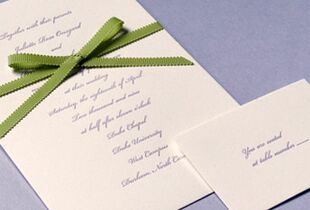 Together with their parents
Juliette Rose
and
at their wedding
Saturday, the eighteenth of April
Two thousand and nine
at half after seven o'clock
Duke Chapel
Duke University
West Campus
Durham, North
You are seated
at table number